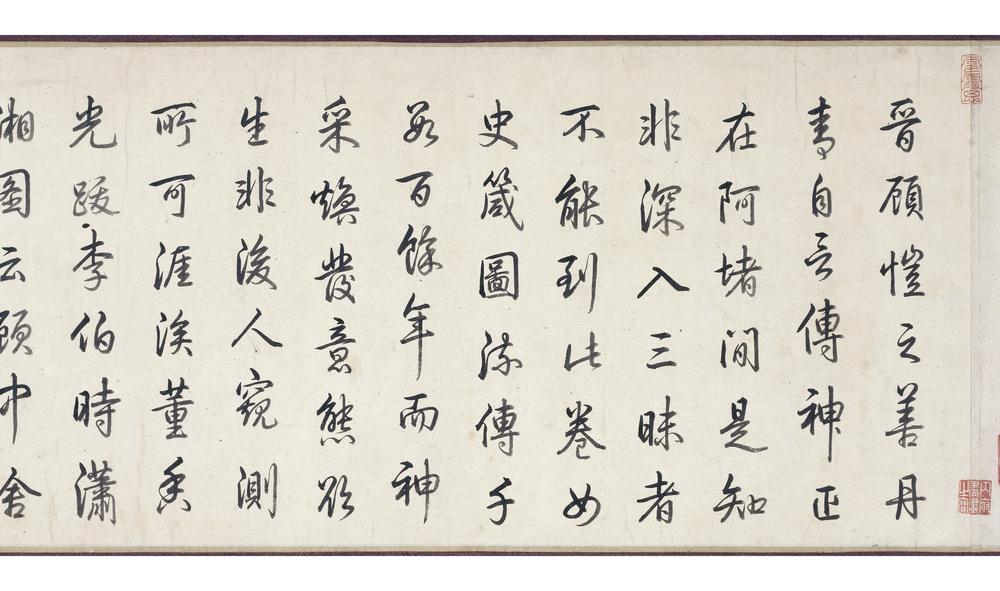 晉顧愷之善丹
青自言傳神正
在阿堵間是知
非深入三昧者
不能到此卷女
史箴圖流傳千
數百餘年而神
采煥發意態欲
生非後人窺測
所可涯涘董香
光跋李伯時瀟
湘圖云顧中舍